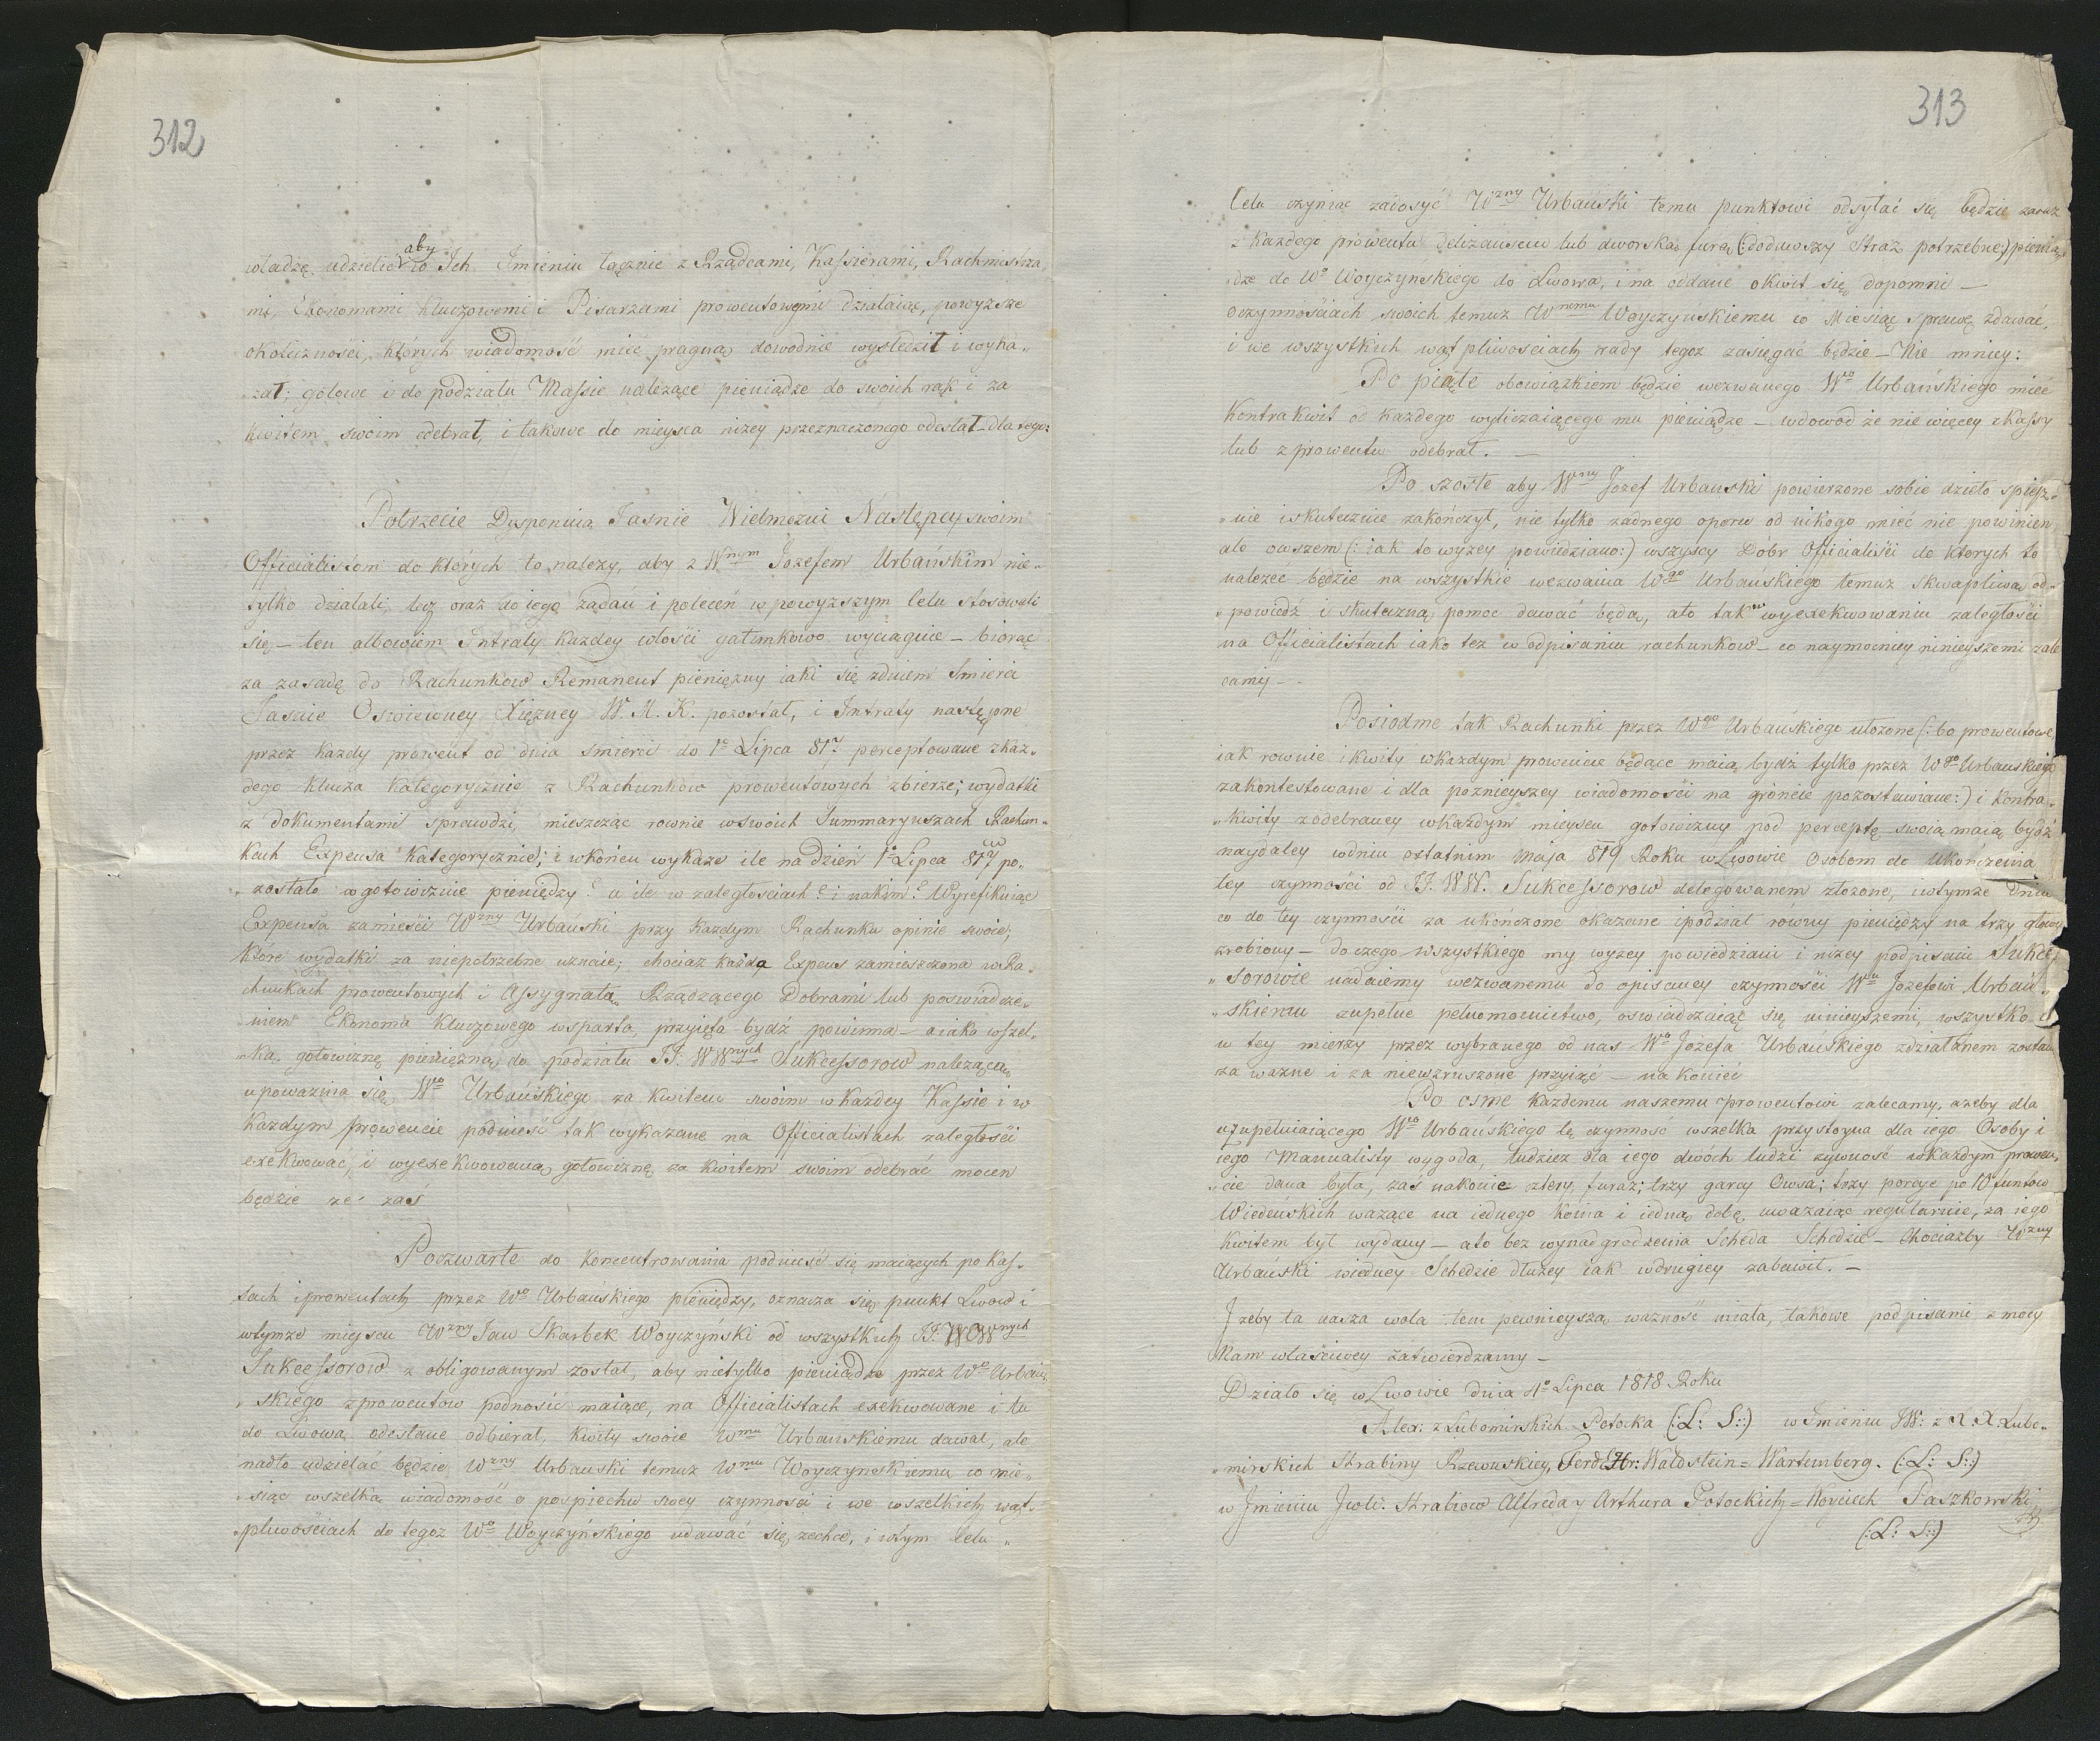 312
władzę udzielić aby w Ich Imieniu łącznie z Rządcami, Kassierami, Rachmistrza„
mi, Ekonomami kluczowemi i Pisarzami prowentowemi działaiąc, powyższe
okoliczności, których wiadomość mieć pragną dowodnie wyśledził i wyka„
„zał; gotowe i do podziału Massie należące pieniądze do swoich rąk i za
kwitem swoim odebrał, i takowe do mieysca niżey przeznaczonego odesłał – dla tego:
Potrzecie Dysponuią Jaśnie Wielmożni Następcy swoim
Officialistom do których to należy, aby z Wnym Jozefem Urbańskim nie„
tylko działali, lecz oraz do iego żądań i poleceń w powyższym Celu stosowali
się – ten albowiem Intraty każdey włości gatunkowo wyciągnie – biorąc
za zasadę do Rachunkow Remanent pieniężny iaki się zdniem Smierci
Jaśnie Oswieconey Xiężney W. M. K. pozostał, i Intraty następne
przez każdy prowent od dnia smierci do 1o Lipca 817 perceptowane zkaż„
dego klucza kategorycznie z Rachunkow prowentowych zbierze; wydatki
z dokumentami sprawdzi, mieszcząc rownie wswoich Summaryuszach Rachun„
kach Expensa kategorycznie; i wkońcu wykaże ile na dzień 1o Lipca 817 po„
„zostało w gotowiznie pieniędzy? a ile w zaległościach? i nakim? Wyrefikuiąc
Expensa zamieści Wzny Urbański przy każdym Rachunku opinie swoie,
które wydatki za niepotrzebne uznaie; chociaż każda Expens zamieszczona wRa„
chunkach prowentowych i Assygnatą Rządzącego Dobrami lub poswiadcze„
niem Ekonoma kluczowego wsparta, przyięta bydź powinna – aiako wszel„
„ką gotowiznę pieniężną do podziału JJ: WWnych Sukcessorow należącą
upoważnia się Wgo Urbańskiego za kwitem swoim wkażdey Kassie i w
każdym prowencie podnieść tak wykazane na Officialistach zaległości
exekwować, i wyexekwowaną gotowiznę za kwitem swoim odebrać mocen
będzie że zaś
Poczwarte do koncentrowania podnieść się maiących po Kas„
sach i prowentach przez Wo Urbańskiego pieniędzy, oznacza się punkt Lwow i
wtymże mieyscu Wzny Jan Skarbek Woyczyński od wszystkich JJ. WWnych
Sukcessorow z obligowanym został, aby nietylko pieniądze przez Wo Urbań„
„skiego zprowentow podnosić maiące, na Officialistach exekwowane i tu
do Lwowa odesłane odbierał, kwity swoie Wmu Urbanskiemu dawał, ale
nadto udzielać będzie Wzny Urbanski temuż Wmu Woyczynskiemu co mie„
„siąc wszelką wiadomość o pospiechu swey czynności i we wszelkich wąt„
„pliwościach do tegoż Wo Woyczyńskiego udawać się zechce, i wtym Celu „
313
Celu czyniąc zadosyć Wzny Urbański temu punktowi odsyłać się będzie zaraz
z każdego prowentu Deliżansem lub dworską furą (:dodawszy Straż potrzebną:) pienią„
„dze do Wo Woyczynskiego do Lwowa, i na oddane okwit się dopomni –
Oczynnościach swoich temuż Wnemu Woyczynskiemu co Miesiąc sprawę zdawać,
i we wszystkich wątpliwościach rady tegoż zasięgać będzie – Nie mniey:
Po piąte obowiązkiem będzie wezwanego Wgo Urbańskiego mieć
Kontrakwit od każdego wyliczaiącego mu pieniądze – wdowod że nie więcey zkassy
lub z prowentu odebrał. –
Po szoste aby Wny Jozef Urbanski powierzone sobie dzieło spiesz„
„nie iskutecznie zakończył, nie tylko żadnego oporu od nikogo mieć nie powinien
ale owszem (:iak to wyżey powiedziano:) wszyscy Dóbr Officialiści do ktorych to
należec będzie na wszystkie wezwania Wgo Urbańskiego temuż skwapliwą od„
„powiedź i skuteczną pomoc dawać będą, ato tak w wyexekwowaniu zaległości
na Officialistach iako też w odpisaniu rachunkow – co naymocniey ninieyszemi zale
camy – –
Posiodme tak Rachunki przez Wgo Urbańskiego ułożone (:bo prowentowe
iak rownie i kwity wkażdym prowencie będące maią bydź tylko przez Wgo Urbanskiego
zakontestowane i dla poźnieyszey wiadomości na gróncie pozostawiane:) i Kontra„
„kwity zodebraney wkażdym mieyscu gotowizny pod perceptę swoią maią bydź
naydaley wdniu ostatnim Maja 819 Roku wLwowie Osobom do Ukończenia
tey czynności od JJ. WW. Sukcessorow delegowanem złożone, iwtymże dniu
co do tey czynności za ukończone okazane ipodział równy pieniędzy na trzy głowy
zrobiony – do czego wszystkiego my wyżey powiedziani i niżey podpisani Sukces„
„sorowie nadaiemy wezwanemu do opisaney czynności Wu Jozefowi Urbań„
„skiemu zupełne pełnomocnictwo, oswiadczaiąc się ninieyszemi, wszystko co
w tey mierzy przez wybranego od nas Wo Jozefa Urbańskiego zdziałanem zostan
za ważne i za niewzruszone przyiąć – na koniec
Po osme każdemu naszemu prowentowi zalecamy, ażeby dla
uzupełniaiącego Wgo Urbanskiego tę czynność wszelka przystoyna dla iego Osoby i
iego Manualisty wygoda, tudziez dla iego dwoch ludzi żywność wkażdym prowen„
„cie dana była, zaś nakonie cztery, furaż; trzy garcy Owsa; trzy porcye po 10 funtow
Wiedenskich ważące na iednego konia i iedną dobę uważaiąc regularnie, za iego
kwitem był wydany – ato bez wynadgrodzenia Scheda Schedzie – Chociażby Wzny
Urbanski wiedney Schedzie dłużey iak wdrugiey zabawił. –
Jżeby ta nasza wola tem pewnieyszą ważność miała, takowe podpisami z mocy
Nam właściwey zatwierdzamy –
Działo się wLwowie dnia 4o Lipca 1818 Roku
Alex: z Lubomirskich Potocka (:L: S::) w Imieniu JW: z X X Lubo„
„mirskich Hrabiny Rzewuskiey, Ferd: Hr: Waldstein = Wartemberg. (:L: S::)
w Jmieniu Jww: Hrabiow Alfreda y Arthura Potockich = Woyciech Paszkowski
(:L: S::)